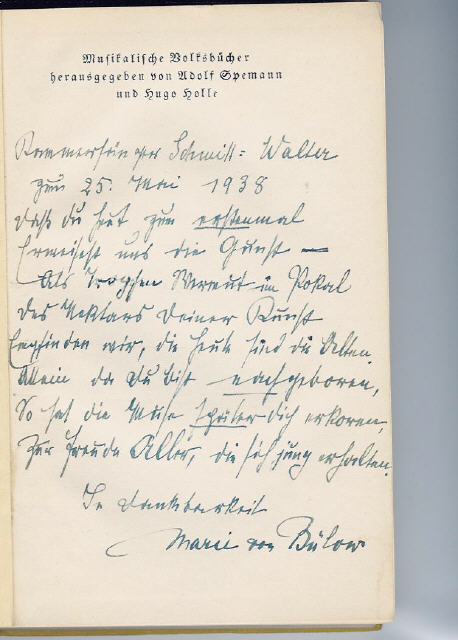 Musikalische Volksbücher
herausgegeben von Adolf Spemann
und Hugo Holle
Kammersänger Schmitt-Walter
zum 25. Mai 1938
Daß du heut zum erstenmal
Erweisest uns die Gunst —
Als Tropfen Wermut im Pokal
Des Nektars Deiner Kunst
Empfinden wir, die heute sind die Alten.
Allein da Du bist nachgeboren,
So hat die Muse später dich erkoren,
Zur Freude Aller, die sich jung erhalten.
In Dankbarkeit
Marie von Bülow